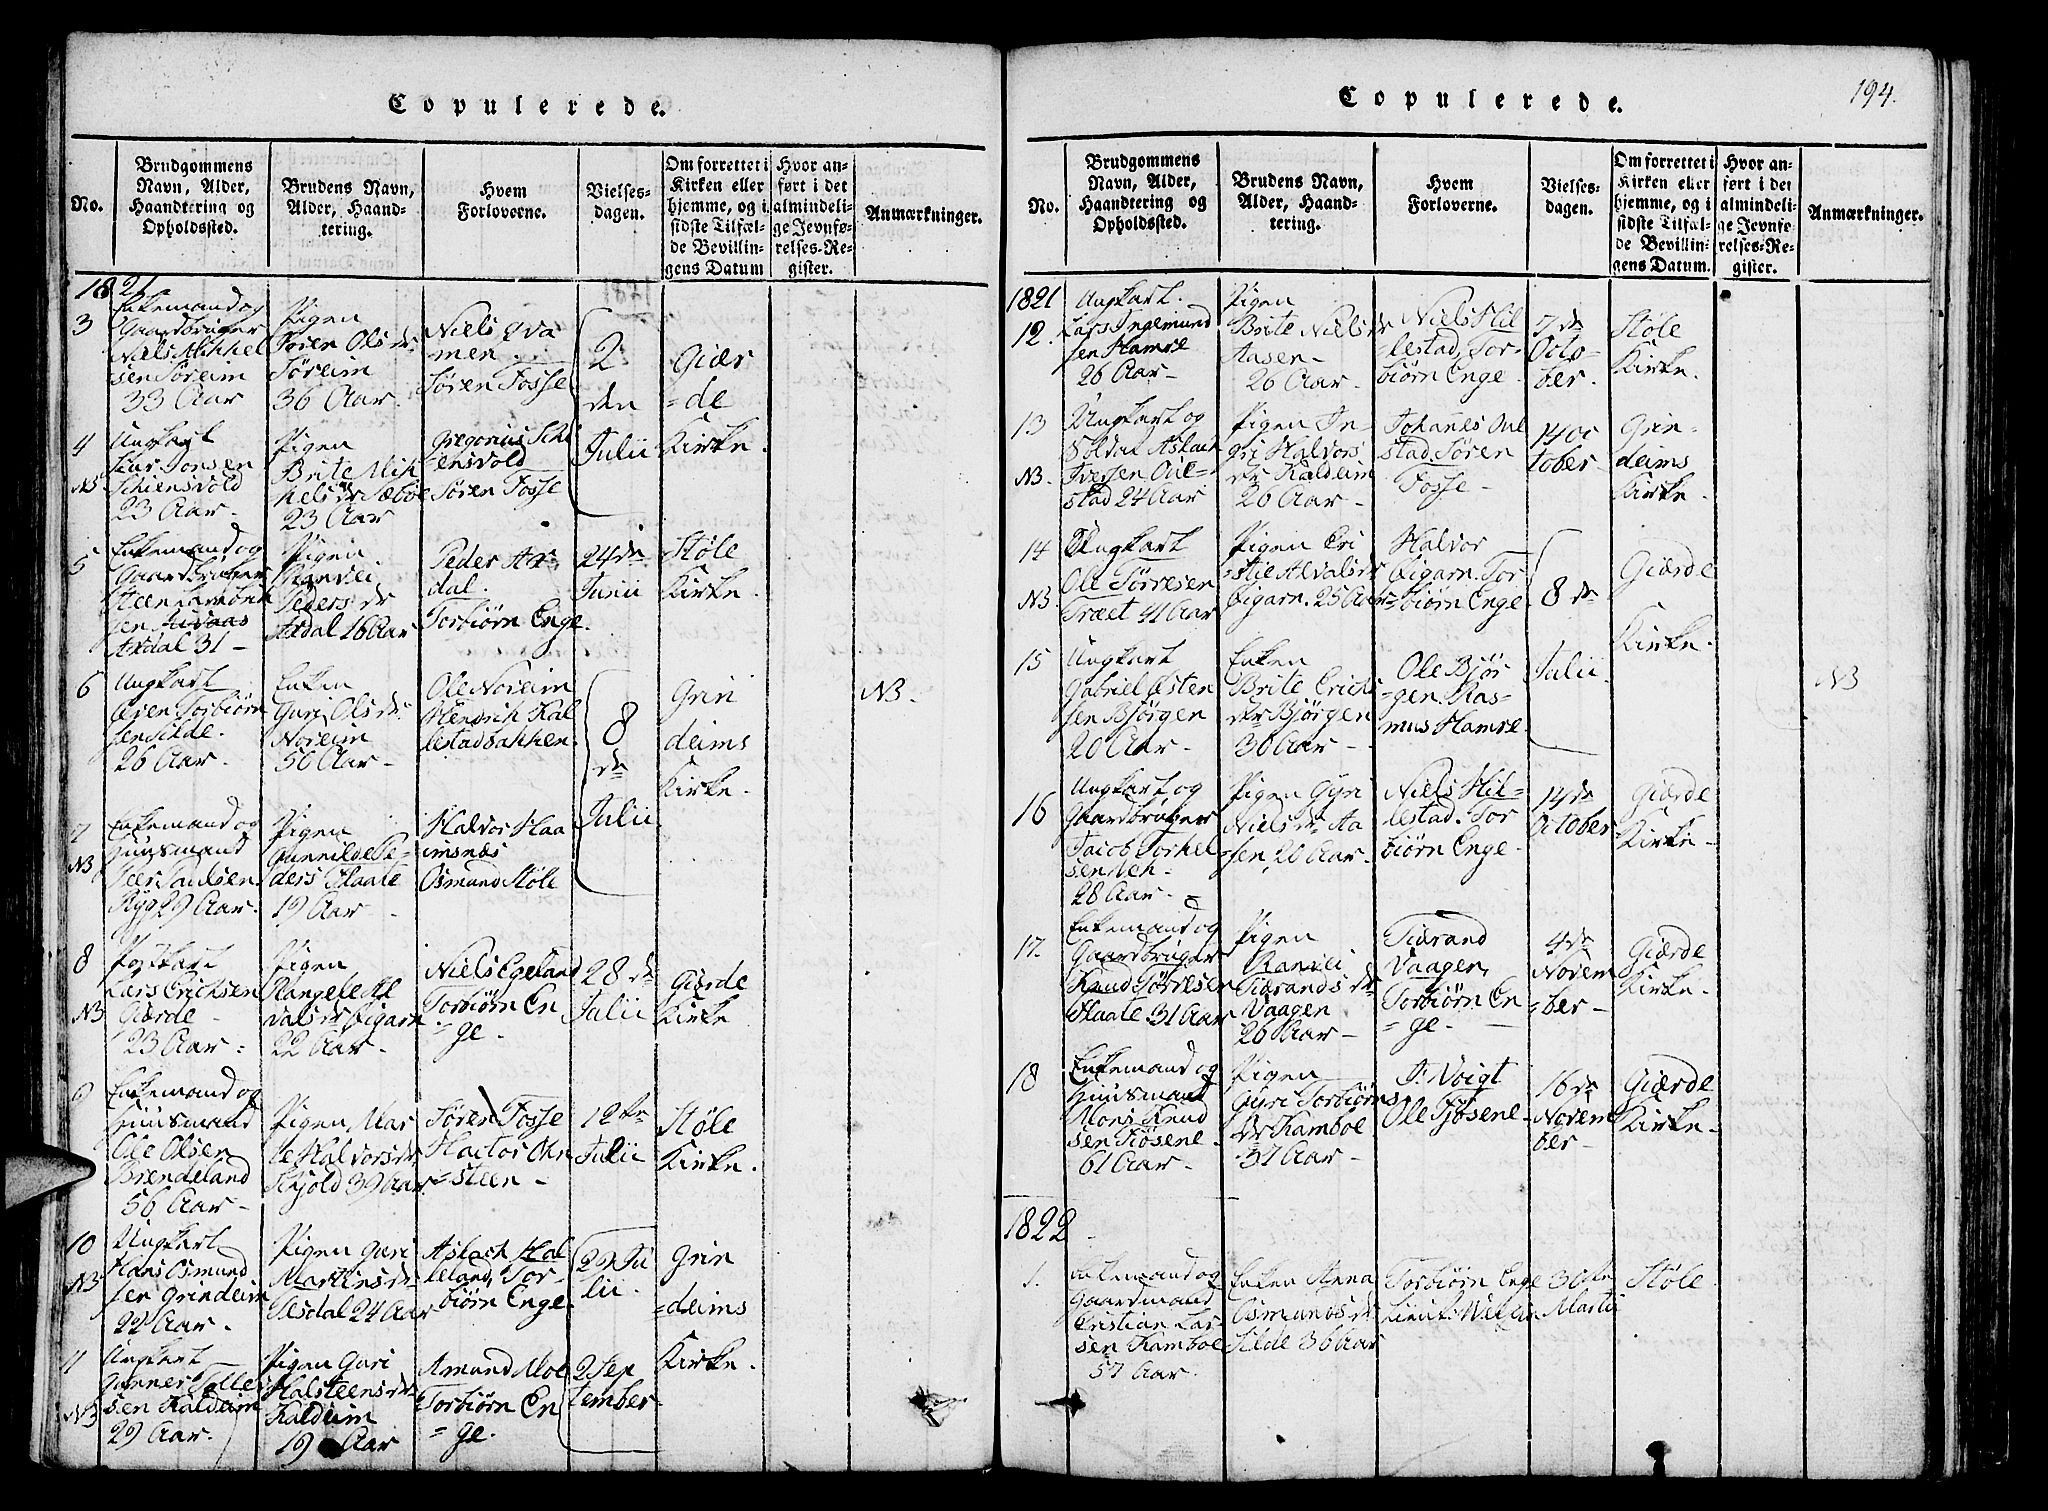 Copulerede.
No.
Brudgommens
Navn, Alder,
Haandtering og
Opholdssted.
Brudens Navn,
Alder, Haand-
tering.
Hvem
Forloverne.
Vielses-
dagen.
Om forrettet i
Kirken eller
hjemme, og i
sidste Tilfæl-
de Bevillin-
gens Datum
Hvor an-
ført i det
almindeli-
ge Jevnfø-
relses-Re-
gister.
Anmærkninger.
1821
3
Enkemand og
Gaardbruger
Niels Mikkel
sen Søreim
33 Aar
Pigen
Olsdr
Søreim
36 Aar.
Niels Qva
men.
Søren Fosse
2
den
Giær
=de
4
NB
Ungkarl
Jonsen
Schiensvold
23 Aar.
Pigen
Brite Mik
kelsdr Sæbøe
23 Aar
Gregorius Schi
=ensvold
Søren Fosse
Julii
Kirke.
5
Enkemand og
Gaardbruger
Steen
sen
Axdal 31 -
Pigen
Ranvei
Peders dr
Axdal 16 Aar
Peder Ax
dal.
Torbiörn Enge.
24 de
Junii
Støle
Kirke.
6
Ungkarl
Torbiörn
sen Silde.
26 Aar.
Enken
Guri Olsdr.
Noreim
50 Aar -
Ole Noreim
Hendrik Kal
lestadbakken.
8
de
Grin
deims
Kirke.
NB.
7
NB
Enkemand og
Huusmand
Peer Paulsen
Ryg 29 Aar.
Pigen
Gunnilde Pe-
ders Flaate
19 Aar -
Halvor Haa
imsnæs
Osmund Støle
Julii
8
NB
Postkarl
Lars Erichsen
Giærde -
23 Aar.
Pigen
Rangele Al
valsdr Øigarn
22 Aar -
Niels Egeland
Torbiörn En
=ge.
28 de
Julii
Giærde
Kirke
9
Enkemand og
Huusmand
Ole Olsen
Brendeland
56 Aar -
Pigen Mar
te Halvorsdr
Skjold 39 Aar.
Søren Fosse
Hactor Øhn
=steen -
12 te
Julii
Støle
Kirke.
10
NB
Ungkarl
Hans Osmund
sen Grindeim
22 Aar.
Pigen Guri
Martinsdr
Ilsdal 24 Aar
Aslach Hal
leland, Tor-
biörn Enge.
29 Ju
lii.
Grin
=deims
11
NB
Ungkarl
Gunner Tolle
sen Kaldeim
29 Aar.
Pigen Guri
Halsteensdr
Kaldeim
19 Aar
Amund Moe
Torbiörn En
=ge.
2 Sep
tember
Kirke.
Copulerede.
194.
No.
Brudgommens
Navn, Alder,
Haandtering og
Opholdssted.
Brudens Navn,
Alder, Haand-
tering.
Hvem
Forloverne.
Vielses-
dagen.
Om forrettet i
Kirken eller
hjemme, og i
sidste Tilfæl-
de Bevillin-
gens Datum.
Hvor an-
ført i det
almindeli-
ge Jevnfø-
relses-Re-
gister.
Anmærkninger.
1821
12.
Ungkarl.
Lars Ingemund
sen Hamre
26 Aar -
Pigen
Brite Nielsdr
Aasen -
26 Aar -
Niels Hil
lestad, Tor-
biörn Enge.
7 de
Octo-
ber.
Støle
Kirke.
13
NB.
Ungkarl og
Soldat Aslach
Iversen Øvle-
stad 24 Aar
Pigen In-
gri Halvors
dr Kaldeim
20 Aar -
Johañes Øvl
stad. Søren
Fosse -
14 Oc
tober -
Grin-
deims
Kirke.
14
NB
Ungkarl
Ole Törresen
Træet 41 Aar
Pigen Cri
=stie Alvalsdr
Øigarn. 25 Aar
Halvor
Øigarn. Tor
=biörn Enge.
8 de
Giærde
15
Ungkarl
Gabriel Østen
sen Bjørgen
20 Aar -
Enken
Brite Erichs
dr Bjørgen
30 Aar -
Ole Bjør
=gen. Ras-
mus Hamre.
Julii.
Kirke.
NB
16
Ungkarl og
Gaardbruger
Jacob Torkel
sen
28 Aar. -
Pigen Gyri
Nielsdr Aa
=sen, 20 Aar -
Niels Hil-
lestad. Tor
biörn Enge.
14 de
October
Giærde
Kirke -
17.
Enkemand og
Gaardbruger
Knud Törresen
Flaate 31 Aar
Pigen
Ranvei
Tiærands dr
Vaagen
26 Aar -
Tiærand
Vaagen,
Torbiörn En
=ge. -
4 de
Novem
=ber -
Giærde
Kirke.
18
Enkemand og
Huusmand
Mons Knud
sen Tiösene.
61 Aar -
Pigen
Gyri Torbiörns
dr Kamboe
37 Aar -
J: Voigt
Ole Tjösene -
16 de
Novem
ber -
Giærde
Kirke.
1822
1.
Enkemand og
Gaardmand
Cristian Lar-
sen Kamboe
57 Aar.
Enken Anna
Osmunds dr
Silde 36 Aar
Torbiörn Enge
Lieut:
30 te
Martii
Støle